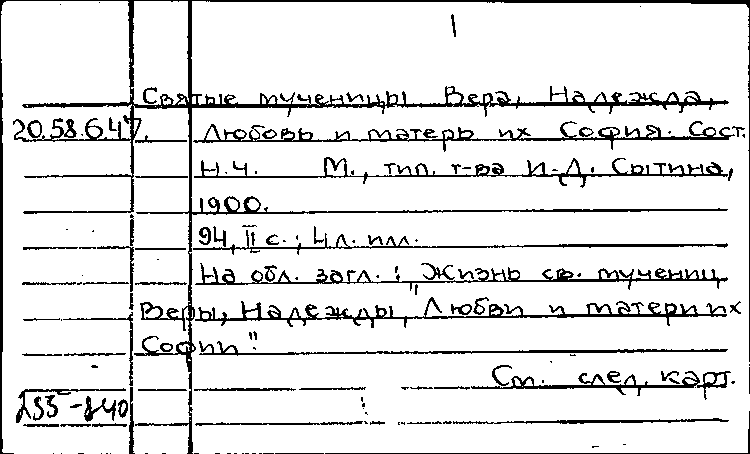 1
Святые мученицы Вера, Надежда,
20.58.6.47. Любовь и матерь их София. Сост.
Н.Ч. М., тип. т-ва И.Д. Сытина,
1900.
94, II с.; 4 л. илл.
На обл. загл.: "Жизнь св. мучениц
Веры, Надежды, Любви и матери их
Софии".
См. след. карт.